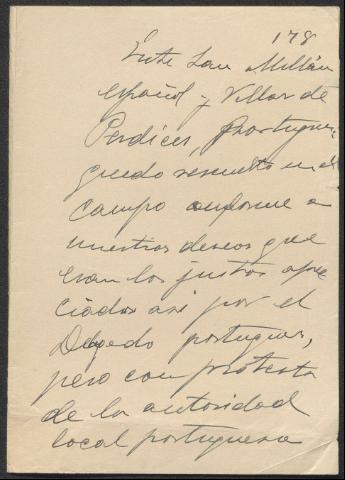 178
Entre San Millán
español y Villar de
Perdices, portugues,
quedo resuelto en el
campo conforme a
nuestros deseos que
eran los justos apre
ciados asi por el
Delegado portugues,
pero con protesta
de la autoridad
local portuguesa